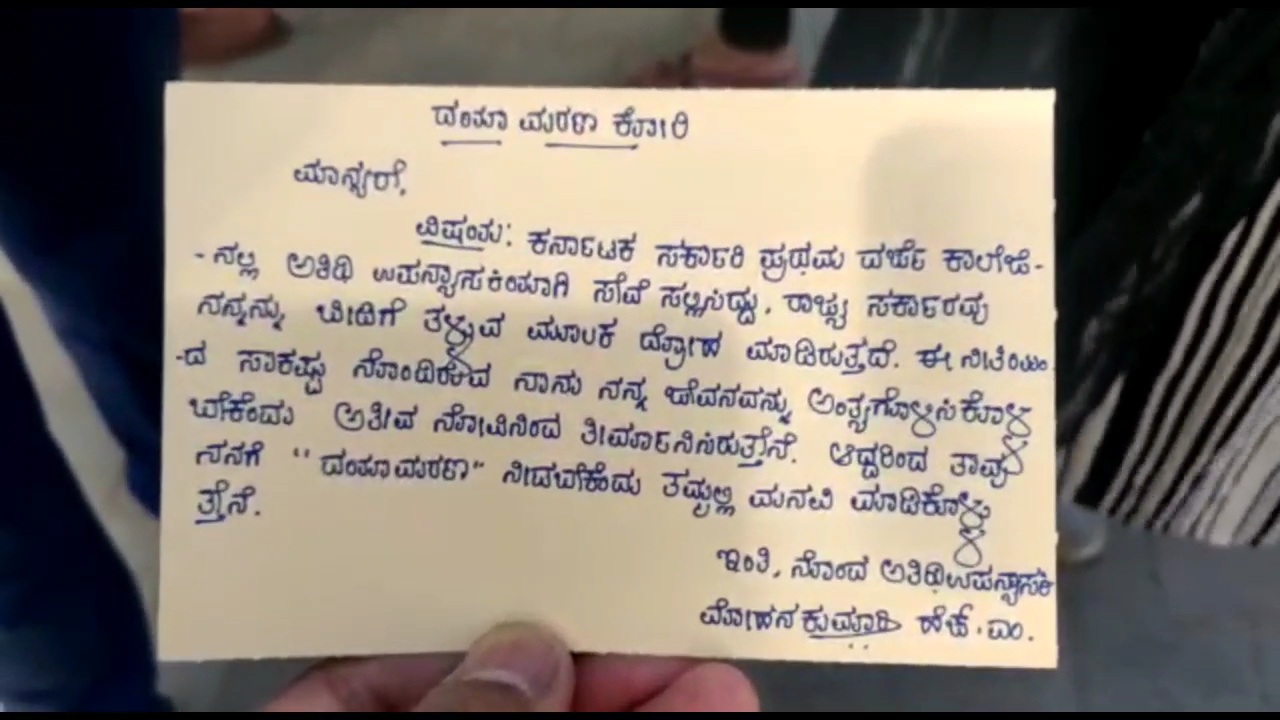 ದಯಾ ಮರಣ ಕೋರಿ
ಮಾನ್ಯರೆ,
ವಿಷಯ: ಕರ್ನಾಟಕ ಸರ್ಕಾರಿ ಪ್ರಥಮ ದರ್ಜೆ ಕಾಲೇಜಿ-
-ನಲ್ಲಿ ಅತಿಥಿ ಉಪನ್ಯಾಸಕಿಯಾಗಿ ಸೇವೆ ಸಲ್ಲಿಸಿದ್ದು, ರಾಜ್ಯ ಸರ್ಕಾರವು
ನನ್ನನ್ನು ಬೀದಿಗೆ ತಳ್ಳುವ ಮೂಲಕ ದ್ರೋಹ ಮಾಡಿರುತ್ತದೆ. ಈ ನೀತಿಯಿಂ
-ದ ಸಾಕಷ್ಟು ನೊಂದಿರುವ ನಾನು ನನ್ನ ಜೀವನವನ್ನು ಅಂತ್ಯಗೊಳಿಸಿಕೊಳ್ಳ
ಬೇಕೆಂದು ಅತೀವ ನೋವಿನಿಂದ ತೀರ್ಮಾನಿಸಿರುತ್ತೇನೆ. ಆದ್ದರಿಂದ ತಾವು
ನನಗೆ "ದಯಾಮರಣ" ನೀಡಬೇಕೆಂದು ತಮ್ಮಲ್ಲಿ ಮನವಿ ಮಾಡಿಕೊಳ್ಳು
ತ್ತೇನೆ.
ಇಂತಿ, ನೊಂದ ಅತಿಥಿಉಪನ್ಯಾಸಕಿ
ಮೋಹನಕುಮಾರಿ ಹೆಚ್.ಎಂ.